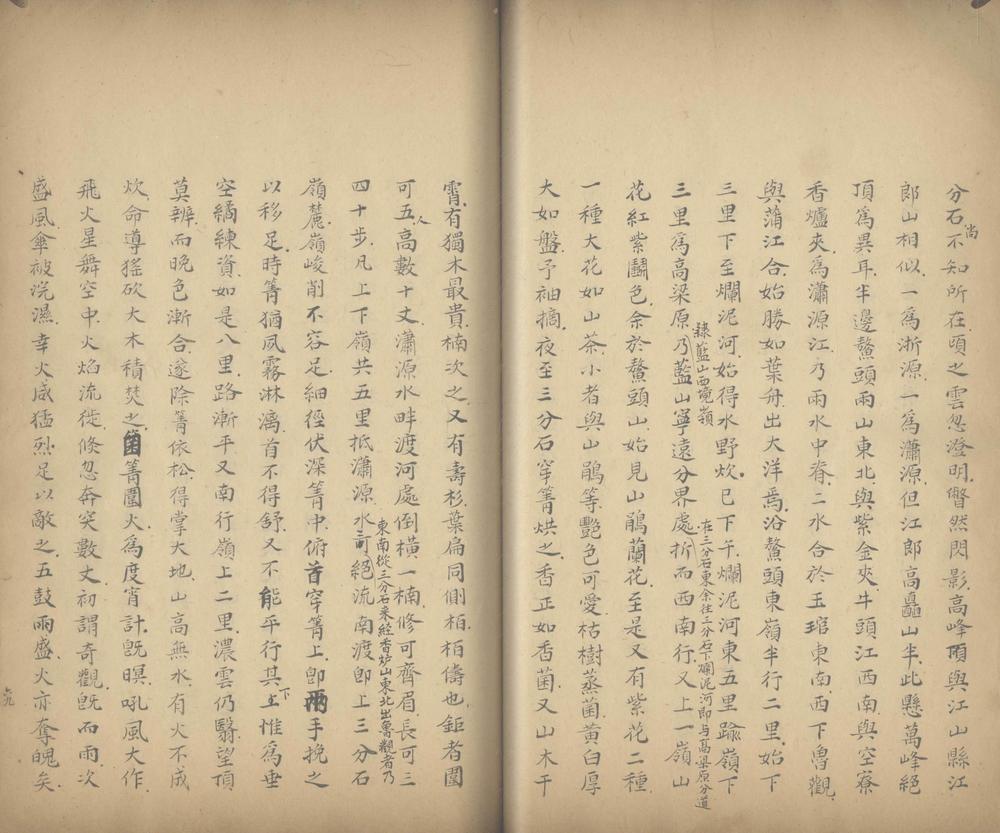 分石尚不知所在頃之雲忽澄明瞥然閃影高峰頂與江山縣江
郎山相似一為浙源一為瀟源但江郎高矗山半此懸萬峰絕
頂為異耳半邊鰲頭雨山東北與紫金夾牛頭江西南與空寮
香爐夾為瀟源江乃雨水中脊二水合於玉琯東南西下魯觀
與蒲江合始勝如葉舟出大洋焉沿鰲頭東嶺半行二里始下
三里下至爛泥河始得水野炊已下午爛泥河東五里踰嶺下
隸藍山西境嶺
在三分石東余往三分石下爛泥河即与高梁原分道
三里為高梁原乃藍山寧遠分界處折而西南行又上一嶺山
花紅紫鬬色余於鰲頭山始見山鵑蘭花至是又有紫花二種
一種大花如山茶小者與山鵑等艷色可愛枯樹蒸菌黄白厚
大如盤予袖摘夜至三分石穿箐烘之香正如香菌又山木干
霄有獨木最貴楠次之又有壽杉葉扁同側柏柏儔也鉅者圍
可五人高數十丈瀟源水畔渡河處倒橫一楠修可齊眉長可三
東南從三分石来經香炉山東北出魯觀者乃
四十步凡上下嶺共五里抵瀟源水可絕流南渡即上三分石
嶺麓嶺峻削不容足細徑伏深箐中俯首穿箐上即兩手挽之
以移足時箐猶風霧淋漓首不得舒又不能平行其上下惟為垂
空繘練資如是八里路漸平又南行嶺上二里濃雲仍翳望頂
莫辨而晚色漸合遂除箐依松得掌大地山高無水有火不成
炊命導猺砍大木積焚之箐圍火為度宵計既暝吼風大作
飛火星舞空中火焰流徙倏忽奔突數丈初謂奇觀既而雨次
盛風傘被浣濕幸火威猛烈足以敵之五鼓雨盛火亦奪魄矣
六九